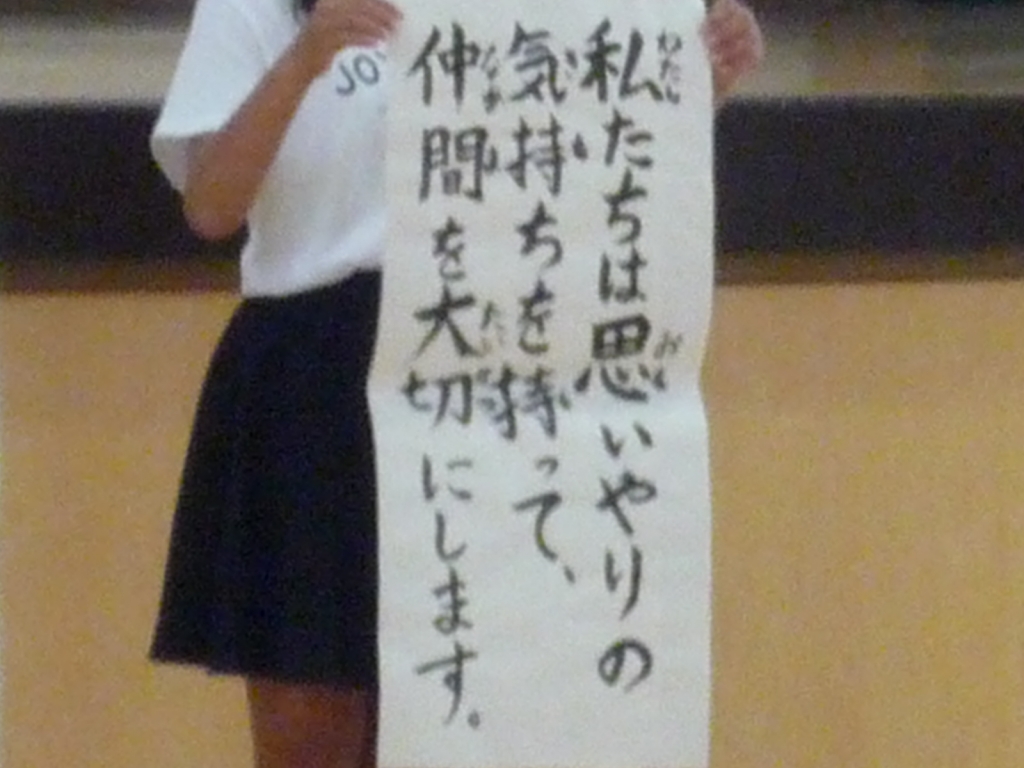 私たちは思いやりの
気持ちを持って、
仲間を大切にします。
JO